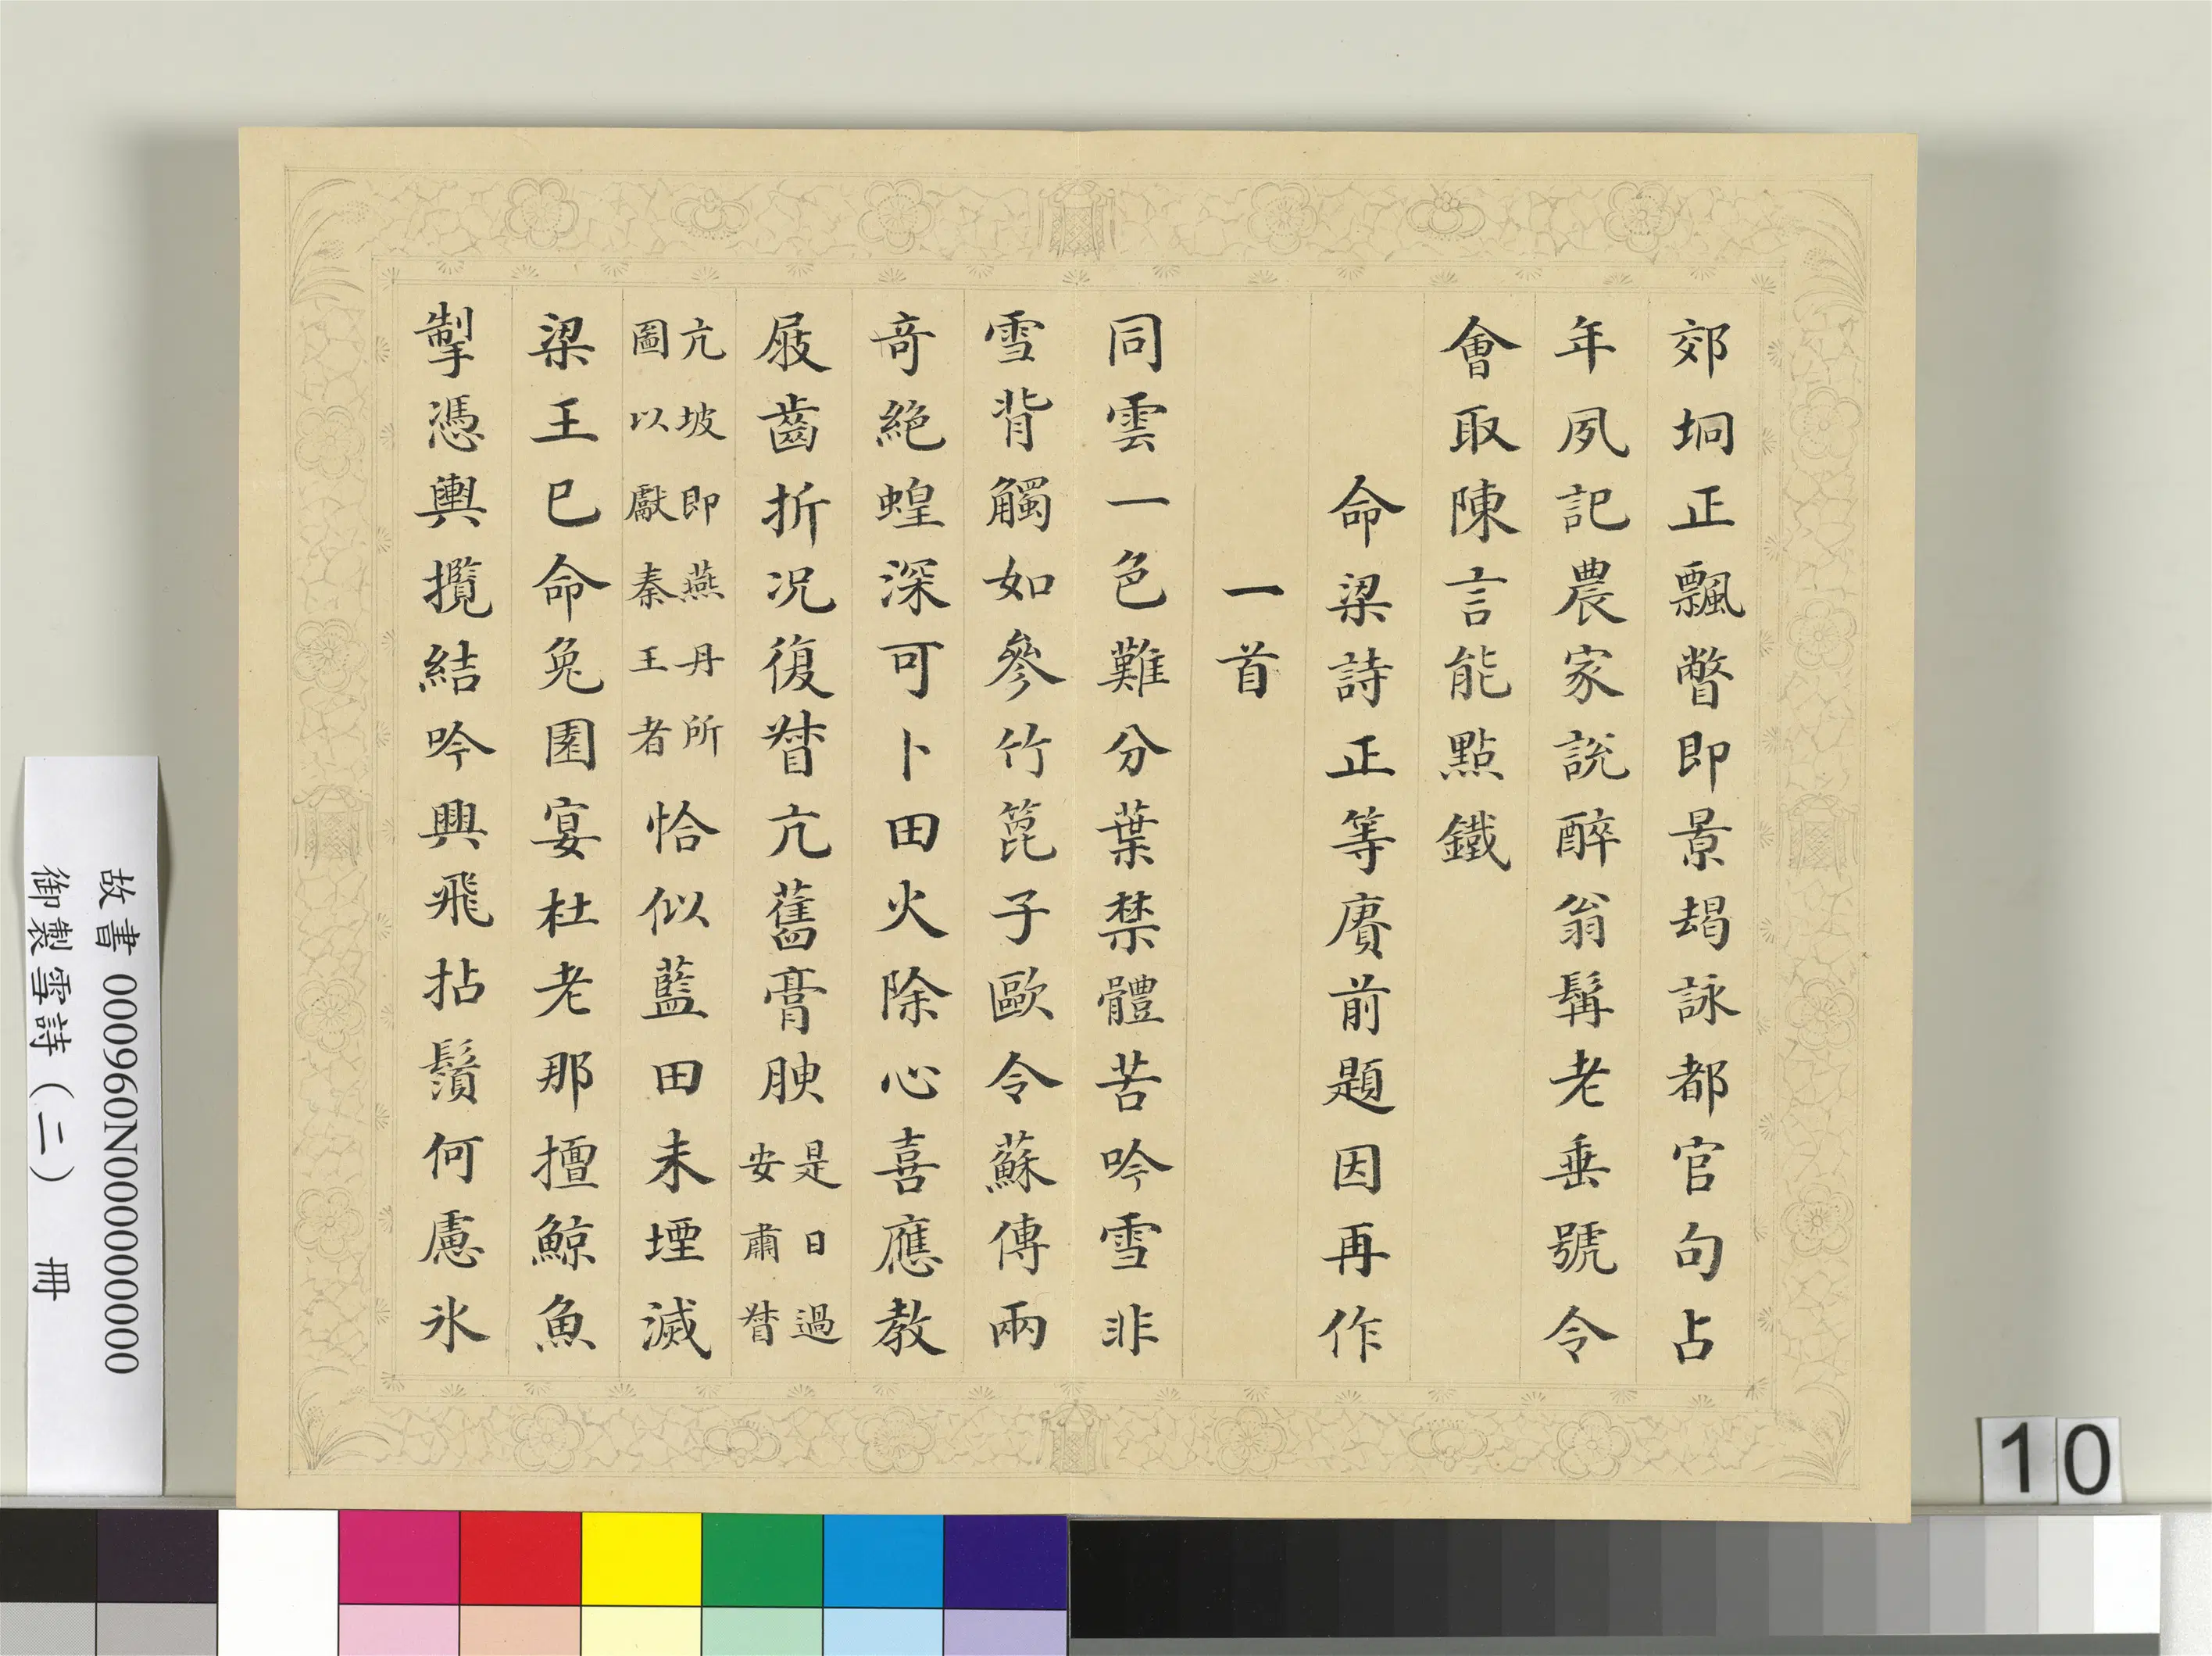 郊坰正飄瞥即景朅詠都官句占
年夙記農家說醉翁髯老垂號令
會取陳言能點鐵
命梁詩正等賡前題因再作
一首
同雲一色難分葉禁體苦吟雪非
雪背觸如參竹篦子歐令蘇傳兩
奇絕蝗深可卜田火除心喜應教
屐齒折况復督亢舊膏腴是日過
安肅督
亢坡即燕丹所
圖以獻秦王者恰似藍田未堙滅
梁王已命兔園宴杜老那擅鯨魚
掣憑輿攬結吟興飛拈鬚何慮氷
故書 000960N000000000
御製雪詩（二） 冊
10